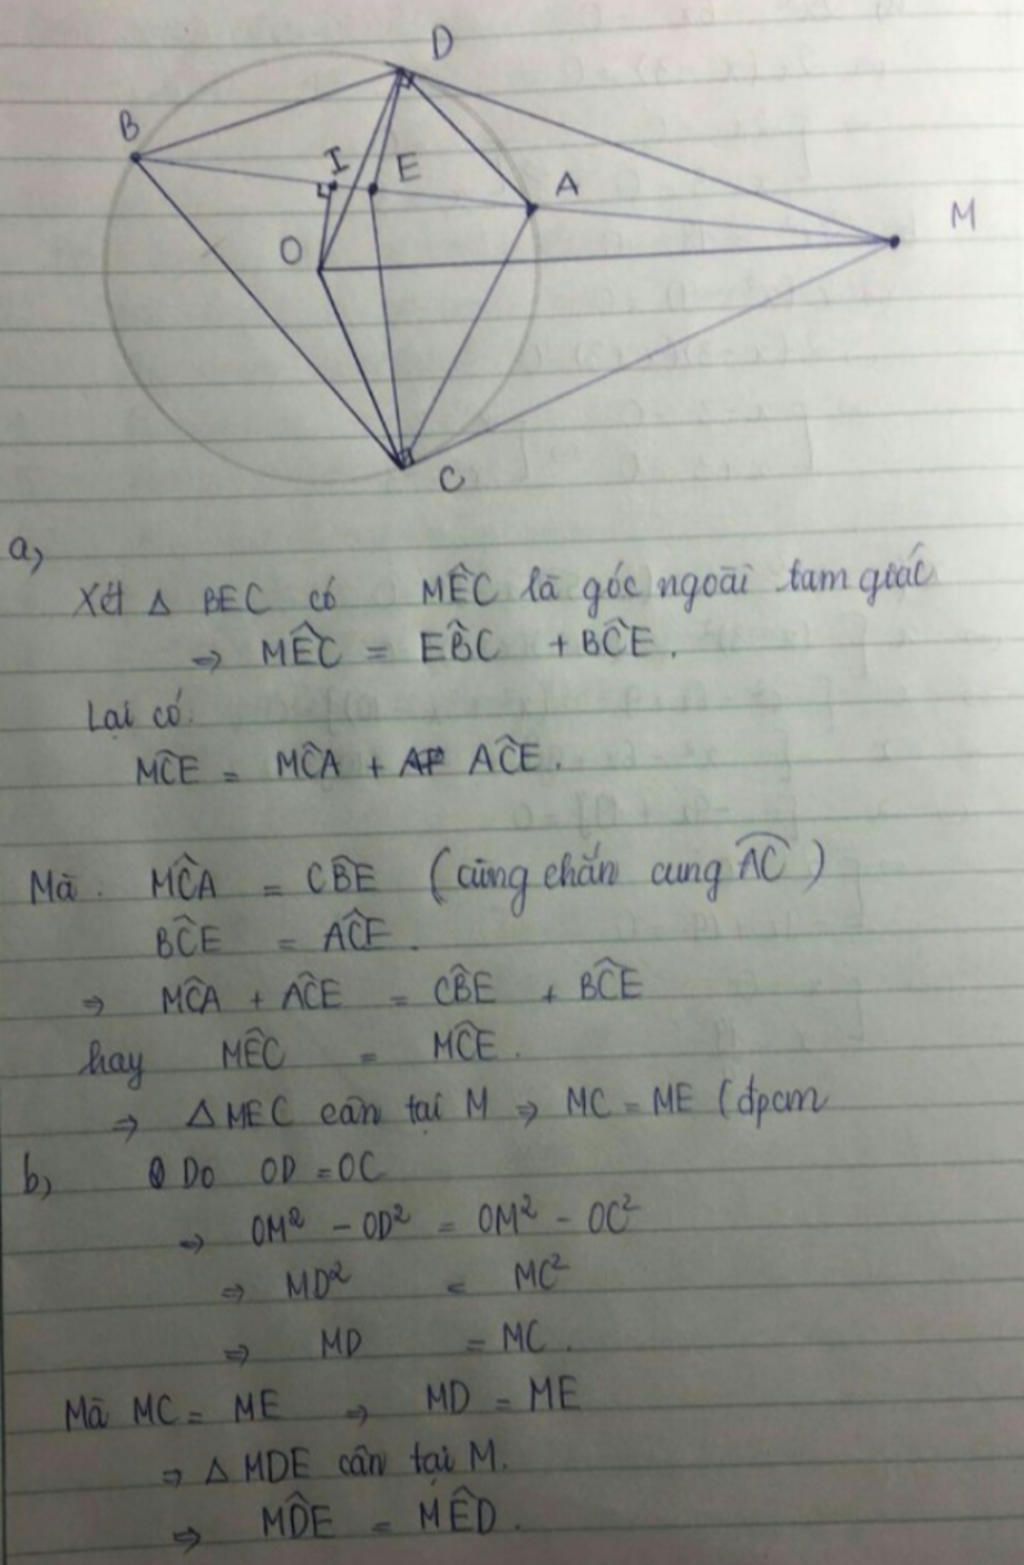 D
B
I
E
A
M
O
C
a,
Xét Δ BEC có MÊC là góc ngoài tam giác
⇒ MÊC = EB̂C + BĈE.
Lại có:
MĈE = MĈA + AĈE.
Mà MĈA = CB̂E (cùng chắn cung AC)
BĈE = AĈE.
⇒ MĈA + AĈE = CB̂E + BĈE
hay MÊC = MĈE.
⇒ Δ MEC cân tại M ⇒ MC = ME (đpcm
b, Do OD = OC
⇒ OM² - OD² = OM² - OC²
⇒ MD² = MC²
⇒ MD = MC.
Mà MC = ME ⇒ MD = ME
⇒ Δ MDE cân tại M.
⇒ MD̂E = MÊD.